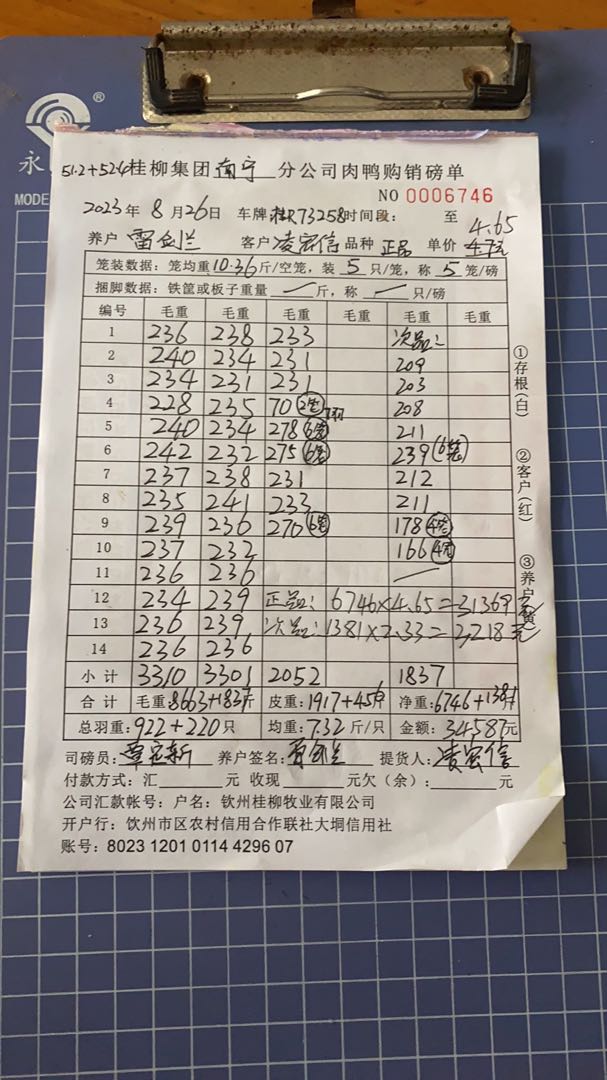 ®
永
MODE
51.2+52.4桂柳集团南宁分公司肉鸭购销磅单
NO 0006746
2023年8月26日 车牌桂R73258时间段: 至
4.65
养户 客户凌宏信品种 正品 单价
笼装数据:笼均重10.36斤/空笼,装5只/笼,称5笼/磅
捆脚数据:铁筐或板子重量 — 斤,称 — 只/磅
编号 毛重 毛重 毛重 毛重 毛重 毛重
1 236 238 233 次品:
2 240 234 231 209
3 234 231 231 203
4 228 235 70 (2笼) 208
5 240 234 278 (6笼) 211
6 242 232 275 (6笼) 239 (6笼)
7 237 238 231 212
8 235 241 233 211
9 239 230 270 (6笼) 178 (4笼)
10 237 232 166 (4笼)
11 236 236 —
12 234 239 正品: 6746×4.65=31369元
13 236 239 次品: 1381×2.33=3,218元
14 236 236
小计 3310 3301 2052 1837
合计 毛重:8663+1837斤 皮重:1917+456斤 净重:6746+1381斤
总羽重:922+220只 均重:7.32斤/只 金额:34587元
司磅员: 养户签名: 提货人:凌宏信
付款方式:汇 元 收现 元欠(余): 元
公司汇款帐号:户名:钦州桂柳牧业有限公司
开户行:钦州市区农村信用合作联社大垌信用社
账号:8023 1201 0114 4296 07
①存根(白)
②客户(红)
③养户(黄)